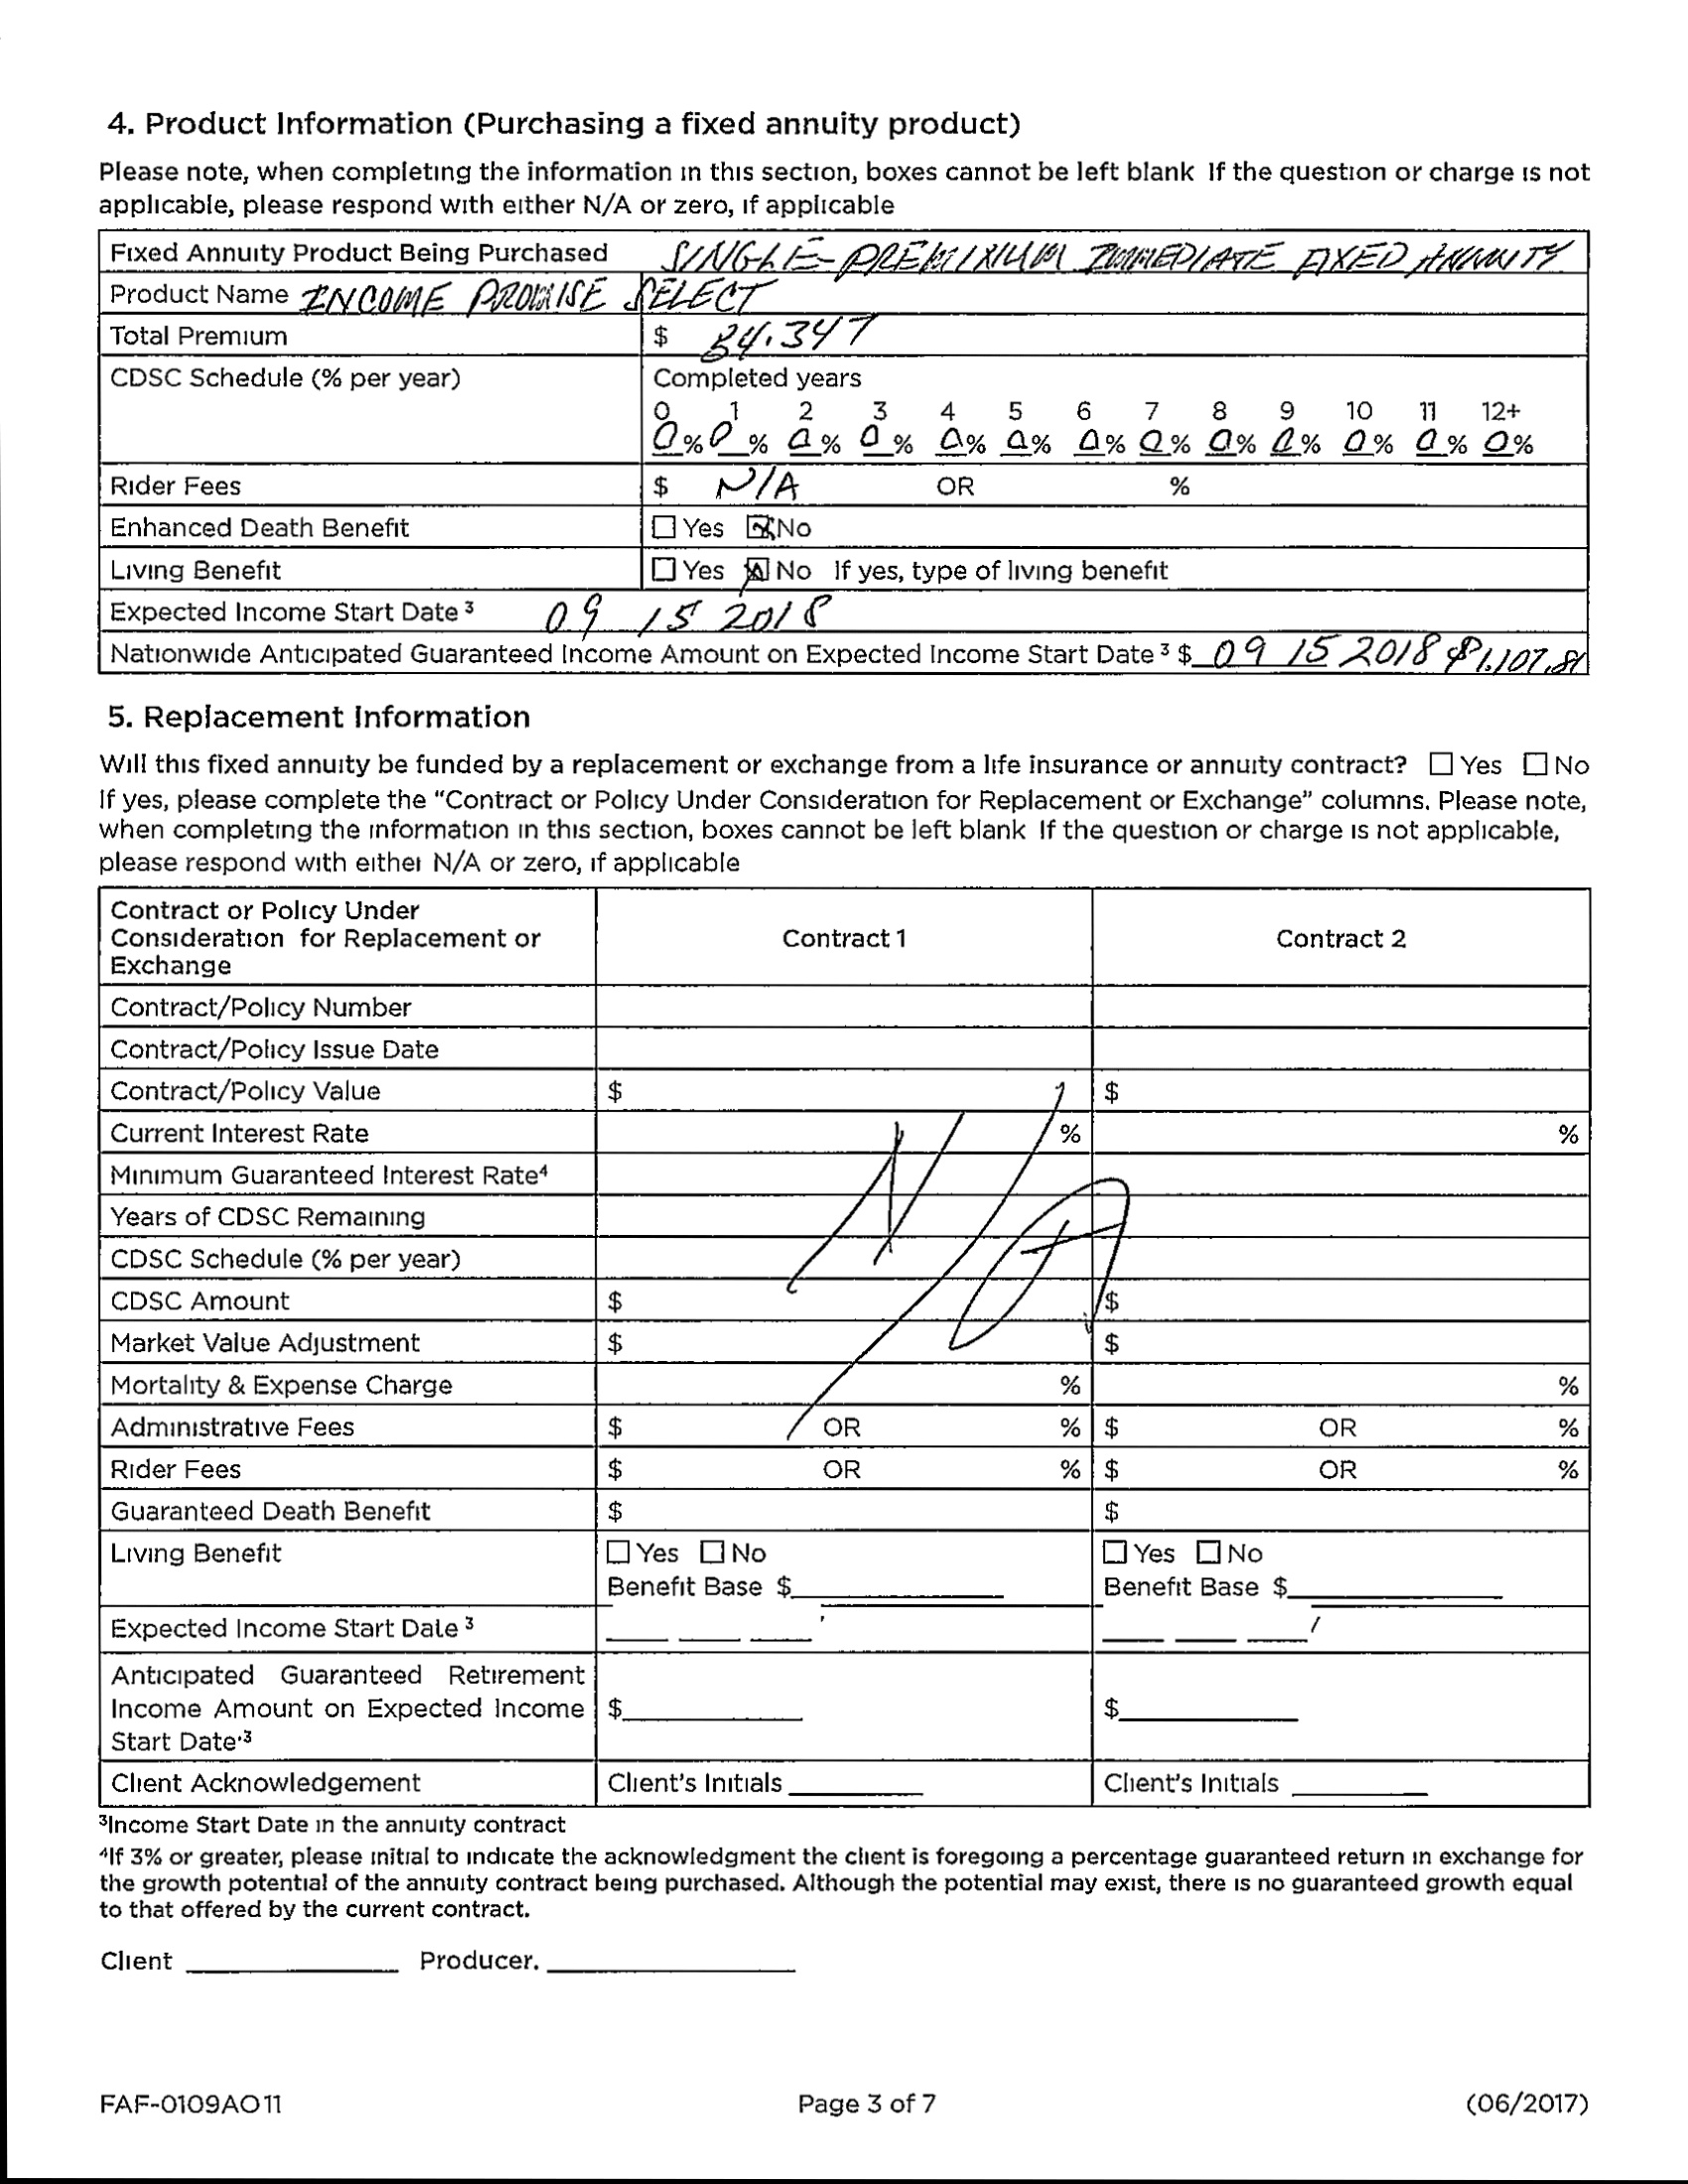 4. Product Information (Purchasing a fixed annuity product)
Please note, when completing the information in this section, boxes cannot be left blank If the question or charge is not
applicable, please respond with either N/A or zero, if applicable
Fixed Annuity Product Being Purchased SINGLE-PREMIXIUM IMMEDIATE FIXED ANNUITY
Product Name INCOME PROMISE SELECT
Total Premium $ 84,347
CDSC Schedule (% per year) Completed years
0 1 2 3 4 5 6 7 8 9 10 11 12+
0% 0% 0% 0% 0% 0% 0% 0% 0% 0% 0% 0% 0%
Rider Fees $ N/A OR %
Enhanced Death Benefit Yes No
Living Benefit Yes No If yes, type of living benefit
Expected Income Start Date 3 09 15 2018
Nationwide Anticipated Guaranteed Income Amount on Expected Income Start Date 3 $ 09 15 2018 $1,107.81
5. Replacement Information
Will this fixed annuity be funded by a replacement or exchange from a life insurance or annuity contract? Yes No
If yes, please complete the "Contract or Policy Under Consideration for Replacement or Exchange" columns. Please note,
when completing the information in this section, boxes cannot be left blank If the question or charge is not applicable,
please respond with either N/A or zero, if applicable
Contract or Policy Under
Consideration for Replacement or
Exchange
Contract 1 Contract 2
Contract/Policy Number
Contract/Policy Issue Date
Contract/Policy Value $ $
Current Interest Rate % %
Minimum Guaranteed Interest Rate4
N/A
Years of CDSC Remaining
CDSC Schedule (% per year)
CDSC Amount $ $
Market Value Adjustment $ $
Mortality & Expense Charge % %
Administrative Fees $ OR % $ OR %
Rider Fees $ OR % $ OR %
Guaranteed Death Benefit $ $
Living Benefit Yes No Yes No
Benefit Base $ Benefit Base $
Expected Income Start Date 3
Anticipated Guaranteed Retirement
Income Amount on Expected Income $ $
Start Date.3
Client Acknowledgement Client's Initials Client's Initials
3Income Start Date in the annuity contract
4If 3% or greater, please initial to indicate the acknowledgment the client is foregoing a percentage guaranteed return in exchange for
the growth potential of the annuity contract being purchased. Although the potential may exist, there is no guaranteed growth equal
to that offered by the current contract.
Client Producer.
FAF-0109AO11 Page 3 of 7 (06/2017)